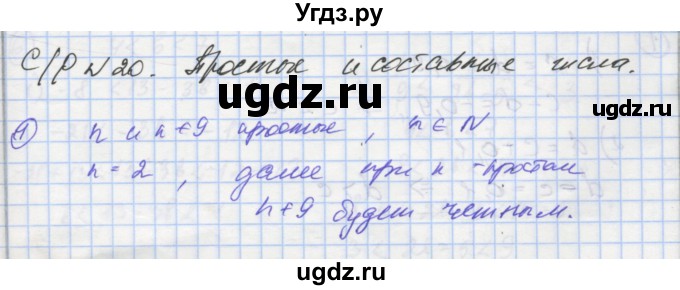 Угдз.ру
С/Р №20. Простые и составные числа.
ugdz.ru
ugdz.ru
① n и n+9 простые, n ∈ N
n=2, далее при n-простом
n+9 будет четным.
ugdz.ru